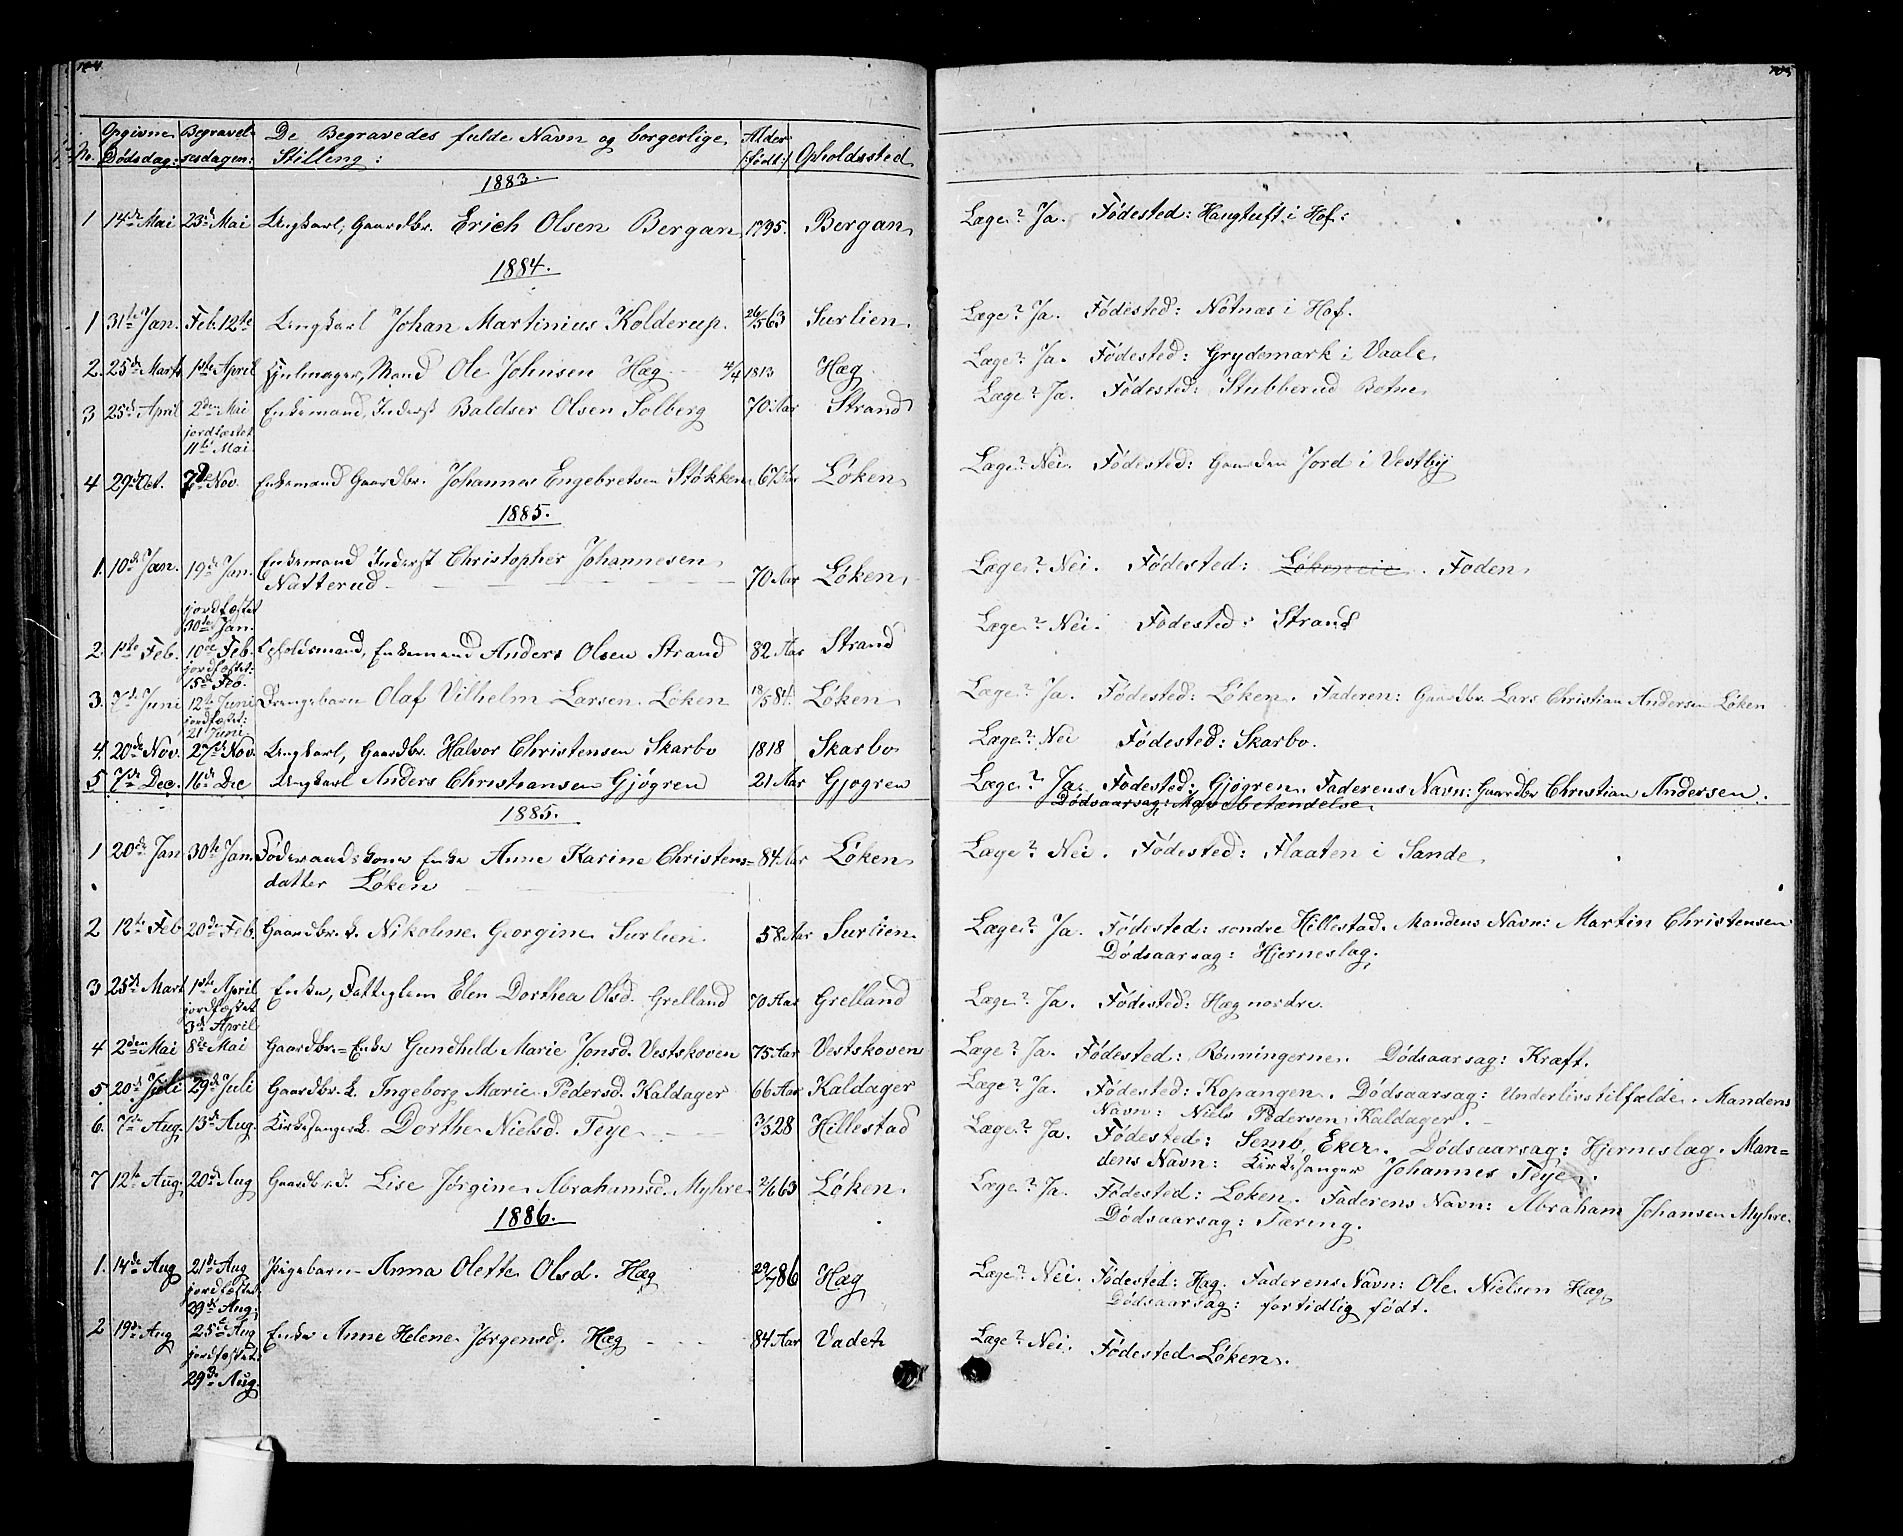 104
Opgivne Begravel- De Begravedes fulde Navn og borgerlige Alder
No. Dødsdag: sesdagen: Stilling: (:født:) Opholdssted
1883.
1 14de Mai 23de Mai Ungkarl, Gaardbr. Erich Olsen Bergan 1795. Bergan
1884.
1 31te Jan. Feb. 12te Ungkarl Johan Martinius Kolderup. 26/5 63 Surlien.
2. 25de Marts 1ste April Hjulmager, Mand Ole Johnsen Hæg 4/4 1813 Hæg
3 25de April 2den Mai Enkemand, Inderst Baldser Olsen Solberg 70 Aar Strand
jordfæstet
11te Mai.
4 29de Oct. 7de Nov. Enkemand Gaardbr. Johannes Engebretsen Støkken Løken
1885.
1. 10de Jan. 19de Jan. Enkemand Inderst Christopher Johannesen
Natterud 70 Aar Løken
jordfæstet
30te Jan.
2. 1ste Feb. 10de Feb. Enkemand Anders Olsen Strand 82 Aar Strand
jordfæstet:
15de Feb.
3. 7de Juni 12te Juni Drengebarn Olaf Vilhelm Larsen Løken 18/5 84. Løken
jordfæstet:
21 Juni
4. 20de Nov. 27de Nov. Ungkarl, Gaardbr. Halvor Christensen Skarbo 1818 Skarbo
5 7de Dec. 16de Dec Ungkarl Anders Christiansen Gjøgren 21 Aar Gjøgren
1885.
1 20de Jan 30te Jan. Føderaadskone Enke Anne Karine Christens= 84 Aar Løken
datter Løken
2 12te Feb 20de Feb. Gaardbr. k. Nikoline Georgine Surlien. 58 Aar Surlien.
3 25de Mart 1ste April Enke, Fattiglem Elen Dorthea Olsd. Grelland 70 Aar Grelland
jordfæstet
3de April
4 2den Mai 8de Mai Gaardbr.= Enke Gundhild Marie Jonsd. Vestskoven 75 Aar Vestskoven
5. 20de Juli 29de Juli Gaardbr. k. Ingeborg Marie Pedersd. Kaldager 66 Aar Kaldager
6. 7de Aug. 13de Aug. Kirkesangerk. Dorthe Nielsd. Teye 28 Hillestad
7 12te Aug. 20de Aug Gaardbr.d. Lise Jørgine Abrahamsd. Myhre 2/6 63 Løken.
1886.
1. 14de Aug 21de Aug Pigebarn Anna Olette Olsd. Hæg 29/7 86 Hæg
jordfæstet:
29de Aug:
2 19de Aug 25de Aug Enke Anne Helene Jørgensd. Hæg 84 Aar Vadet
jordfæstet:
29de Aug.
105
Læge? Ja. Fødested: Haugtuft i Hof.
Læge? Ja. Fødested: Nøtnæs i Hof.
Læge? Ja. Fødested: Grydemark i Vaale
Læge? Ja. Fødested: Stubberud Botne
Læge? Nei. Fødested: Gaarden Jord i Vestby
Læge? Nei. Fødested: Løkeneie. Foden
Læge? Nei. Fødested: Strand
Læge? Ja. Fødested: Løken. Faderen: Gaardbr. Lars Christian Andersen Løken
Læge? Nei Fødested: Skarbo.
Læge? Ja. Fødested: Gjøgren. Faderens Navn: Gaardbr Christian Andersen.
Dødsaarsag:
Læge? Nei. Fødested: Flaaten i Sande
Læge? Ja. Fødested: søndre Hillestad. Mandens Navn: Martin Christensen
Dødsaarsag: Hjerneslag.
Læge? Ja. Fødested: Hæg nordre.
Læge? Ja. Fødested: Rønningerne. Dødsaarsag: Kræft.
Læge? Ja. Fødested: Kopangen. Dødsaarsag: Underlivstilfælde. Mandens
Navn: Niels Pedersen Kaldager.
Læge? Ja. Fødested: Semb, Eker. Dødsaarsag: Hjerneslag. Man=
dens Navn: Kirkesanger Johannes Teye.
Læge? Ja. Fødested: Løken. Faderens Navn: Abraham Johansen Myhre.
Dødsaarsag: Tæring.
Læge? Nei. Fødested: Hæg. Faderens Navn: Ole Nielsen Hæg
Dødsaarsag: fortidlig født.
Læge? Nei. Fødested Løken.